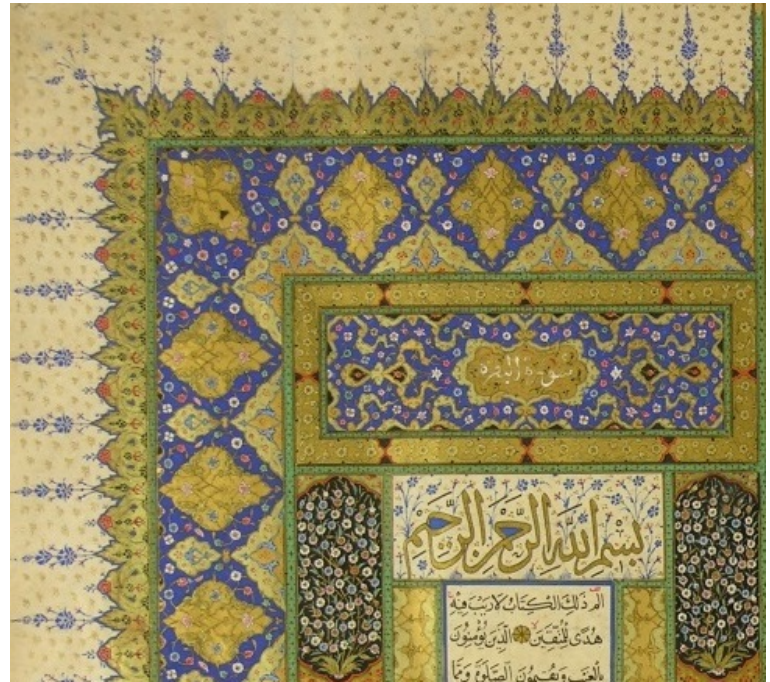 سورة البقرة
بسم الله الرحمن الرحيم
الم ذلك الكتاب لا ريب فيه
هدى للمتقين الذين يؤمنون
بالغيب ويقيمون الصلوة ومما